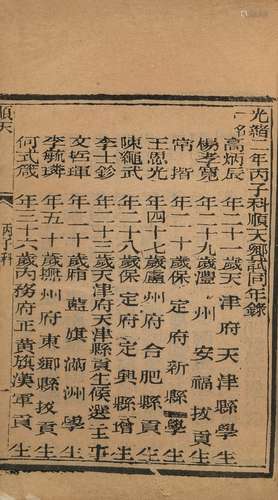 光緒二年丙子科順天鄉試同年錄
高炳辰 年二十一歲天津府天津縣學生
楊孝寬 年二十九灃州安福拔貢生
常楷 年二十保定府新縣學生
王恩光 年四十七廬州府合肥縣貢生
陳繩武 年二十八保定府定興縣增生
李士鉁 年二十三天津府天津縣貢生候選主事
文哲琿 年二十歲廂藍旗滿洲學生
李毓璘 年五十撫州府東鄉縣拔貢生
何式箴 年三十六歲內務府正黃旗漢軍貢生
順天
丙子科